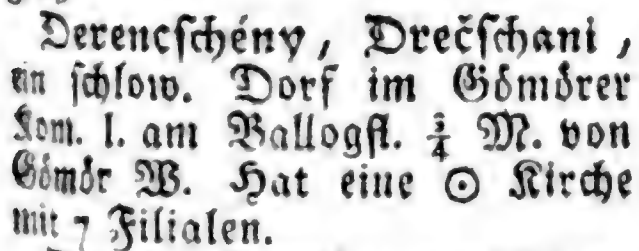 Derencſchény, Drečſchani,
ein ſchlow. Dorf im Gömörer
Kom. l. am Ballogfl. ¾ M. von
Gömör W. Hat eine ⊙ Kirche
mit 7 Filialen.